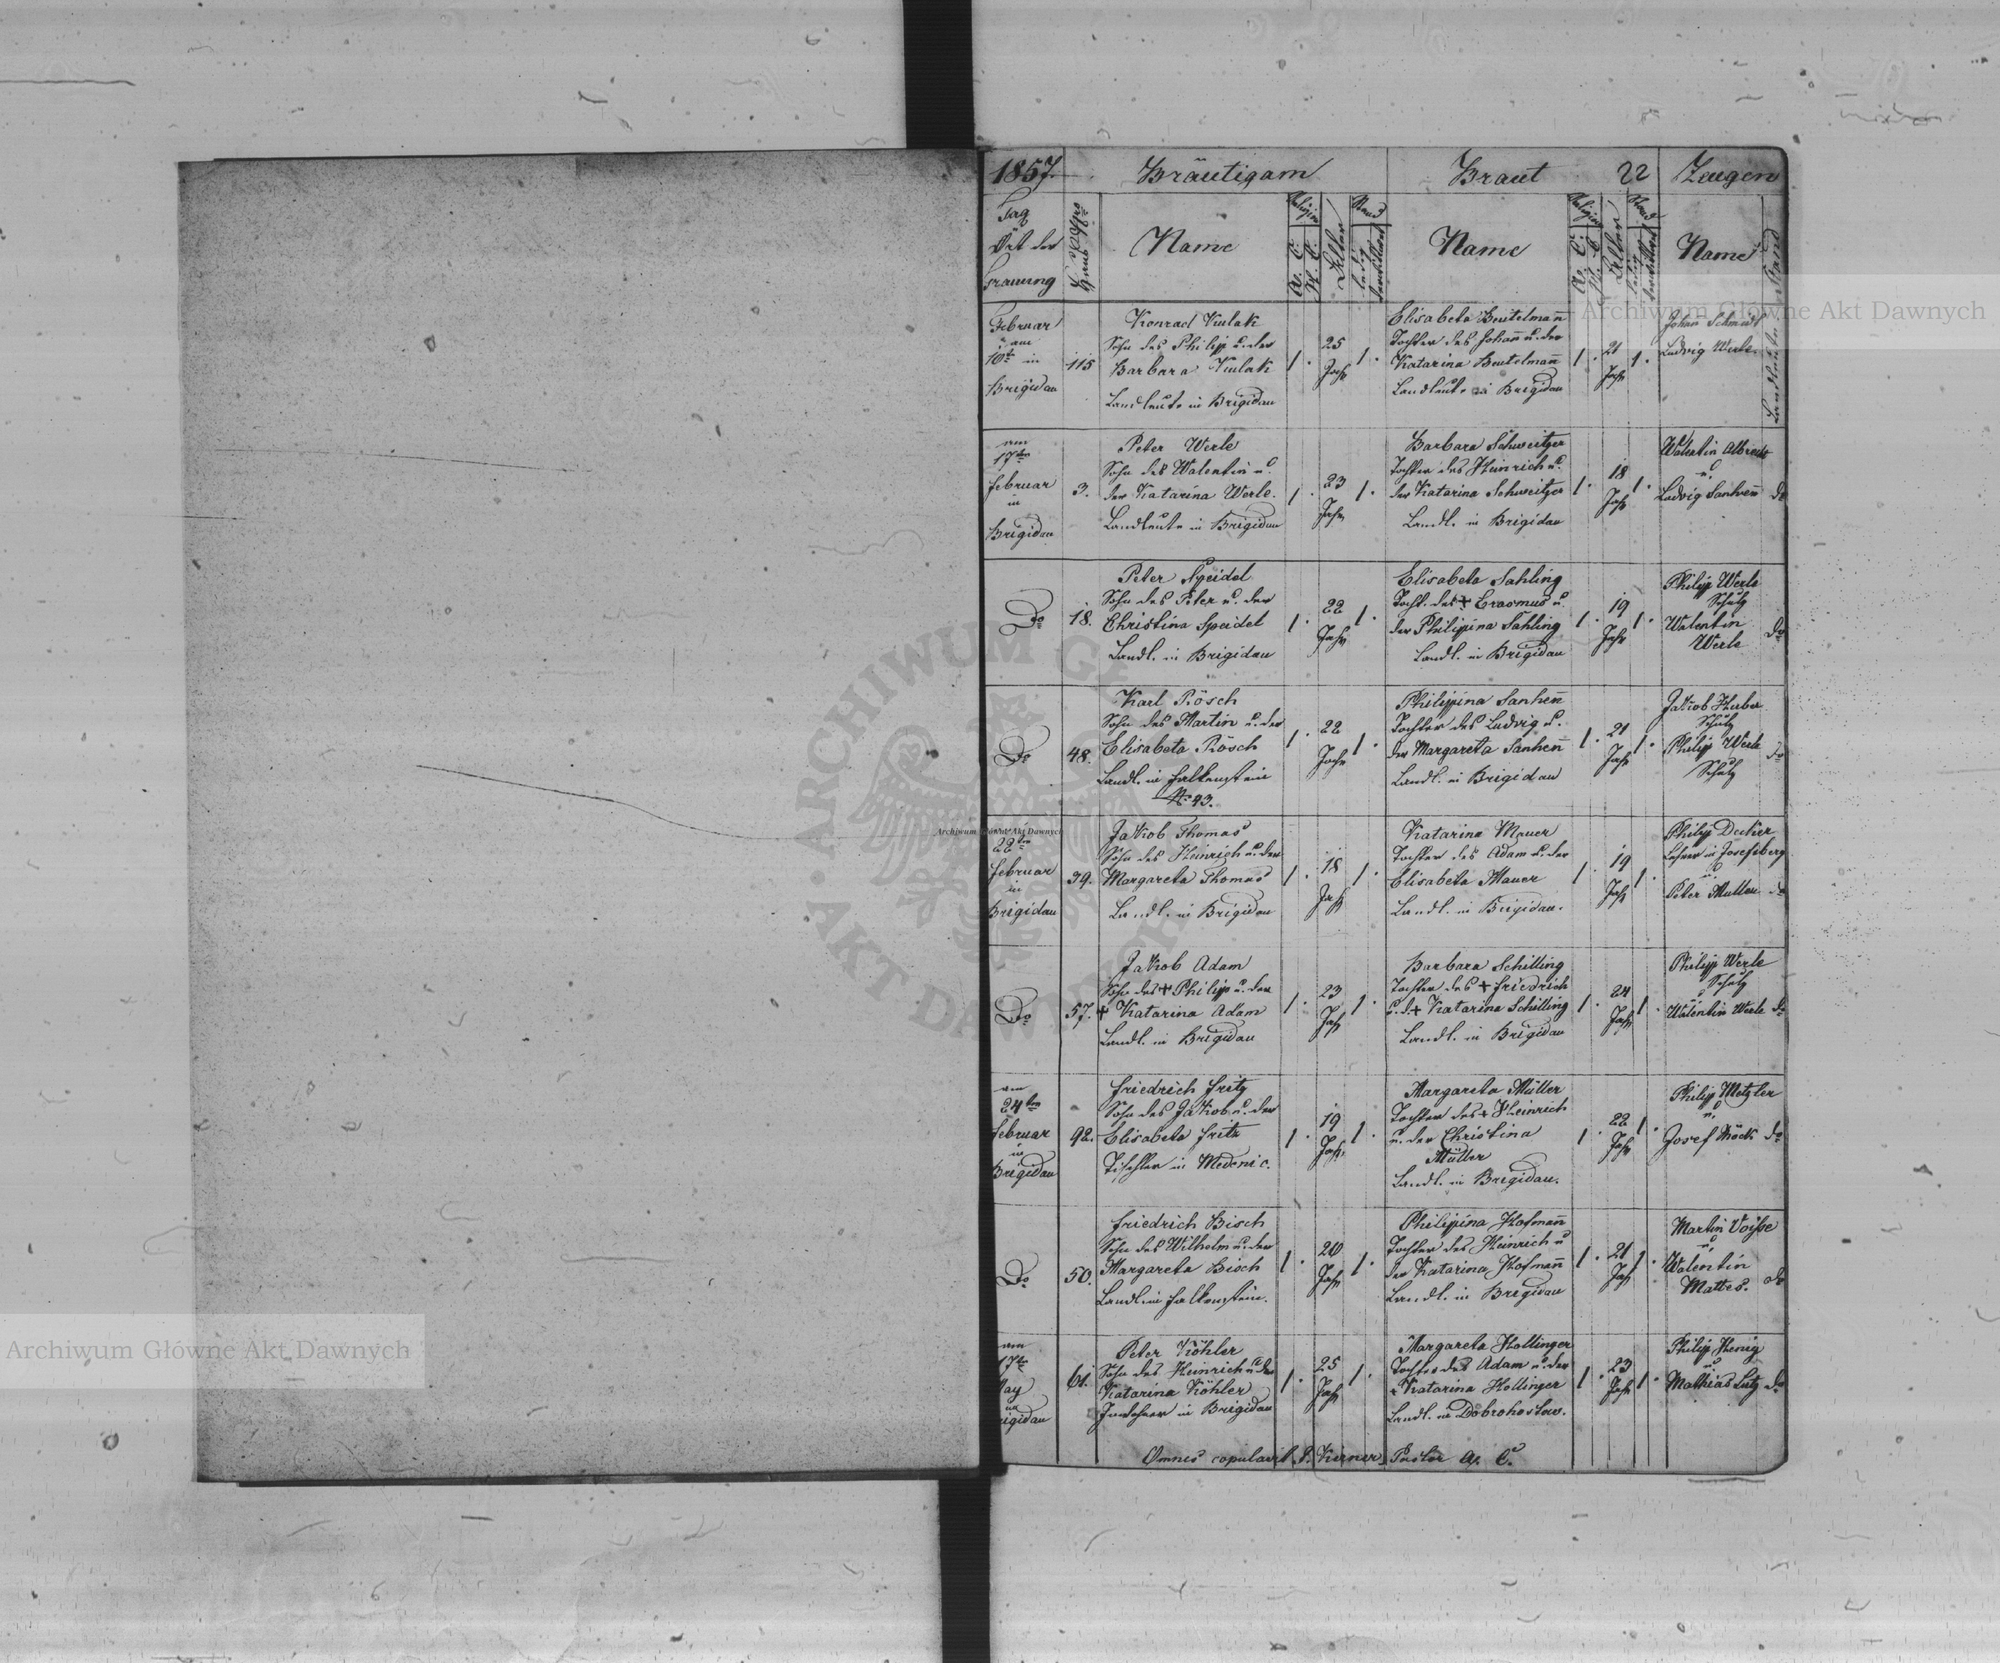 1857.
Bräutigam
Braut
22
Zeugen
Tag
Ort der
Trauung
Haus Nro
Name
Religion
A. C.
H. C.
Alter
Stand
ledig
verwittwet
Name
Religion
A. C.
H. C.
Alter
Stand
ledig
verwittwet
Name
Stand
Februar
am
10t in
Brigidau
115
Konrad Kulak
Sohn des Philipp u. der
Barbara Kulak
Landleute in Brigidau
1.
25
Jahr
1.
Elisabeta Beutelmañ
Tochter des Johañ u. der
Katarina Beutelmañ
Landleute in Brigidau
1.
21
Jahr
1.
Johan Schmidt
Ludvig Werle.
Landleute
am
17ten
februar
in
Brigidau
3.
Peter Werle
Sohn des Walentin u.
der Katarina Werle.
Landleute in Brigidau
1.
23
Jahr
1.
Barbara Schweitzer
Tochter des Heinrich u.
der Katarina Schweitzer
Landl. in Brigidau
1.
18
Jahr
1.
Walentin Albrecht
u
Ludvig Sanheñ
do
Do
18.
Peter Speidel
Sohn des Peter u. der
Christina Speidel
Landl. in Brigidau
1.
22
Jahr
1.
Elisabeta Sahling
Tocht. des + Erasmus u.
der Philipina Sahling
Landl. in Brigidau
1.
19
Jahr
1.
Philipp Werle
Schulz
Walentin
Werle
do
Do
48.
Karl Rösch
Sohn des Martin u. der
Elisabeta Rösch
Landl. in Falkenstein
No 43.
1.
22
Jahr
1.
Philippina Sanheñ
Tochter des Ludvig u.
der Margareta Sanheñ
Landl. in Brigidau
1.
21
Jahr
1.
Jakob Huber
Schulz
Philipp Werle
Schulz
do
22ten
februar
in
Brigidau
39.
Jakob Thomas
Sohn des Heinrich u. der
Margareta Thomas
Landl. in Brigidau
1.
18
Jahr
1.
Katarina Mauer
Tochter des Adam u. der
Elisabeta Mauer
Landl. in Brigidau.
1.
19
Jahr
1.
Philip Decker
Lehrer in Josefsberg
u.
Peter Muller
do
Do
57.
Jakob Adam
Sohn des + Philipp u. der
+ Katarina Adam
Landl. in Brigidau
1.
23
Jahr
1.
Barbara Schilling
Tochter des + friedrich
u. d. + Katarina Schilling
Landl. in Brigidau
1.
24
Jahr
1.
Philipp Werle
Schulz
u
Walentin Werle
do
am
24ten
februar
in
Brigidau
92.
friedrich fritz
Sohn des Jakob u. der
Elisabeta fritz
Tischler in Medenic.
1.
19
Jahr
1.
Margareta Müller
Tochter des + Heinrich
u. der Christina
Müller
Landl. in Brigidau.
1.
22
Jahr
1.
Philip Metzler
u
Josef Köck
do
Do
50.
friedrich Bisch
Sohn des Wilhelm u. der
Margareta Bisch
Landl. in falkenstein.
1.
20
Jahr
1.
Philipina Hofmañ
Tochter des Heinrich u
der Katarina Hofmañ
Landl. in Brigidau
1.
21
Jahr
1.
Martin Voisse
u.
Walentin
Mattes.
do
am
17t
May
in
Brigidau
61.
Peter Köhler
Sohn des Heinrich u. der
Katarina Köhler
Inwohner in Brigidau
1.
25
Jahr
1.
Margareta Hollinger
Tochter des Adam u. der
Katarina Hollinger
Landl. in Dobrohostow.
1.
23
Jahr
1.
Philip Henig
u
Mathias Lutz
do
Omnes copulavit J. Kerner Pastor A. C.
Archiwum Główne Akt Dawnych
Archiwum Główne Akt Dawnych
Archiwum Główne Akt Dawnych